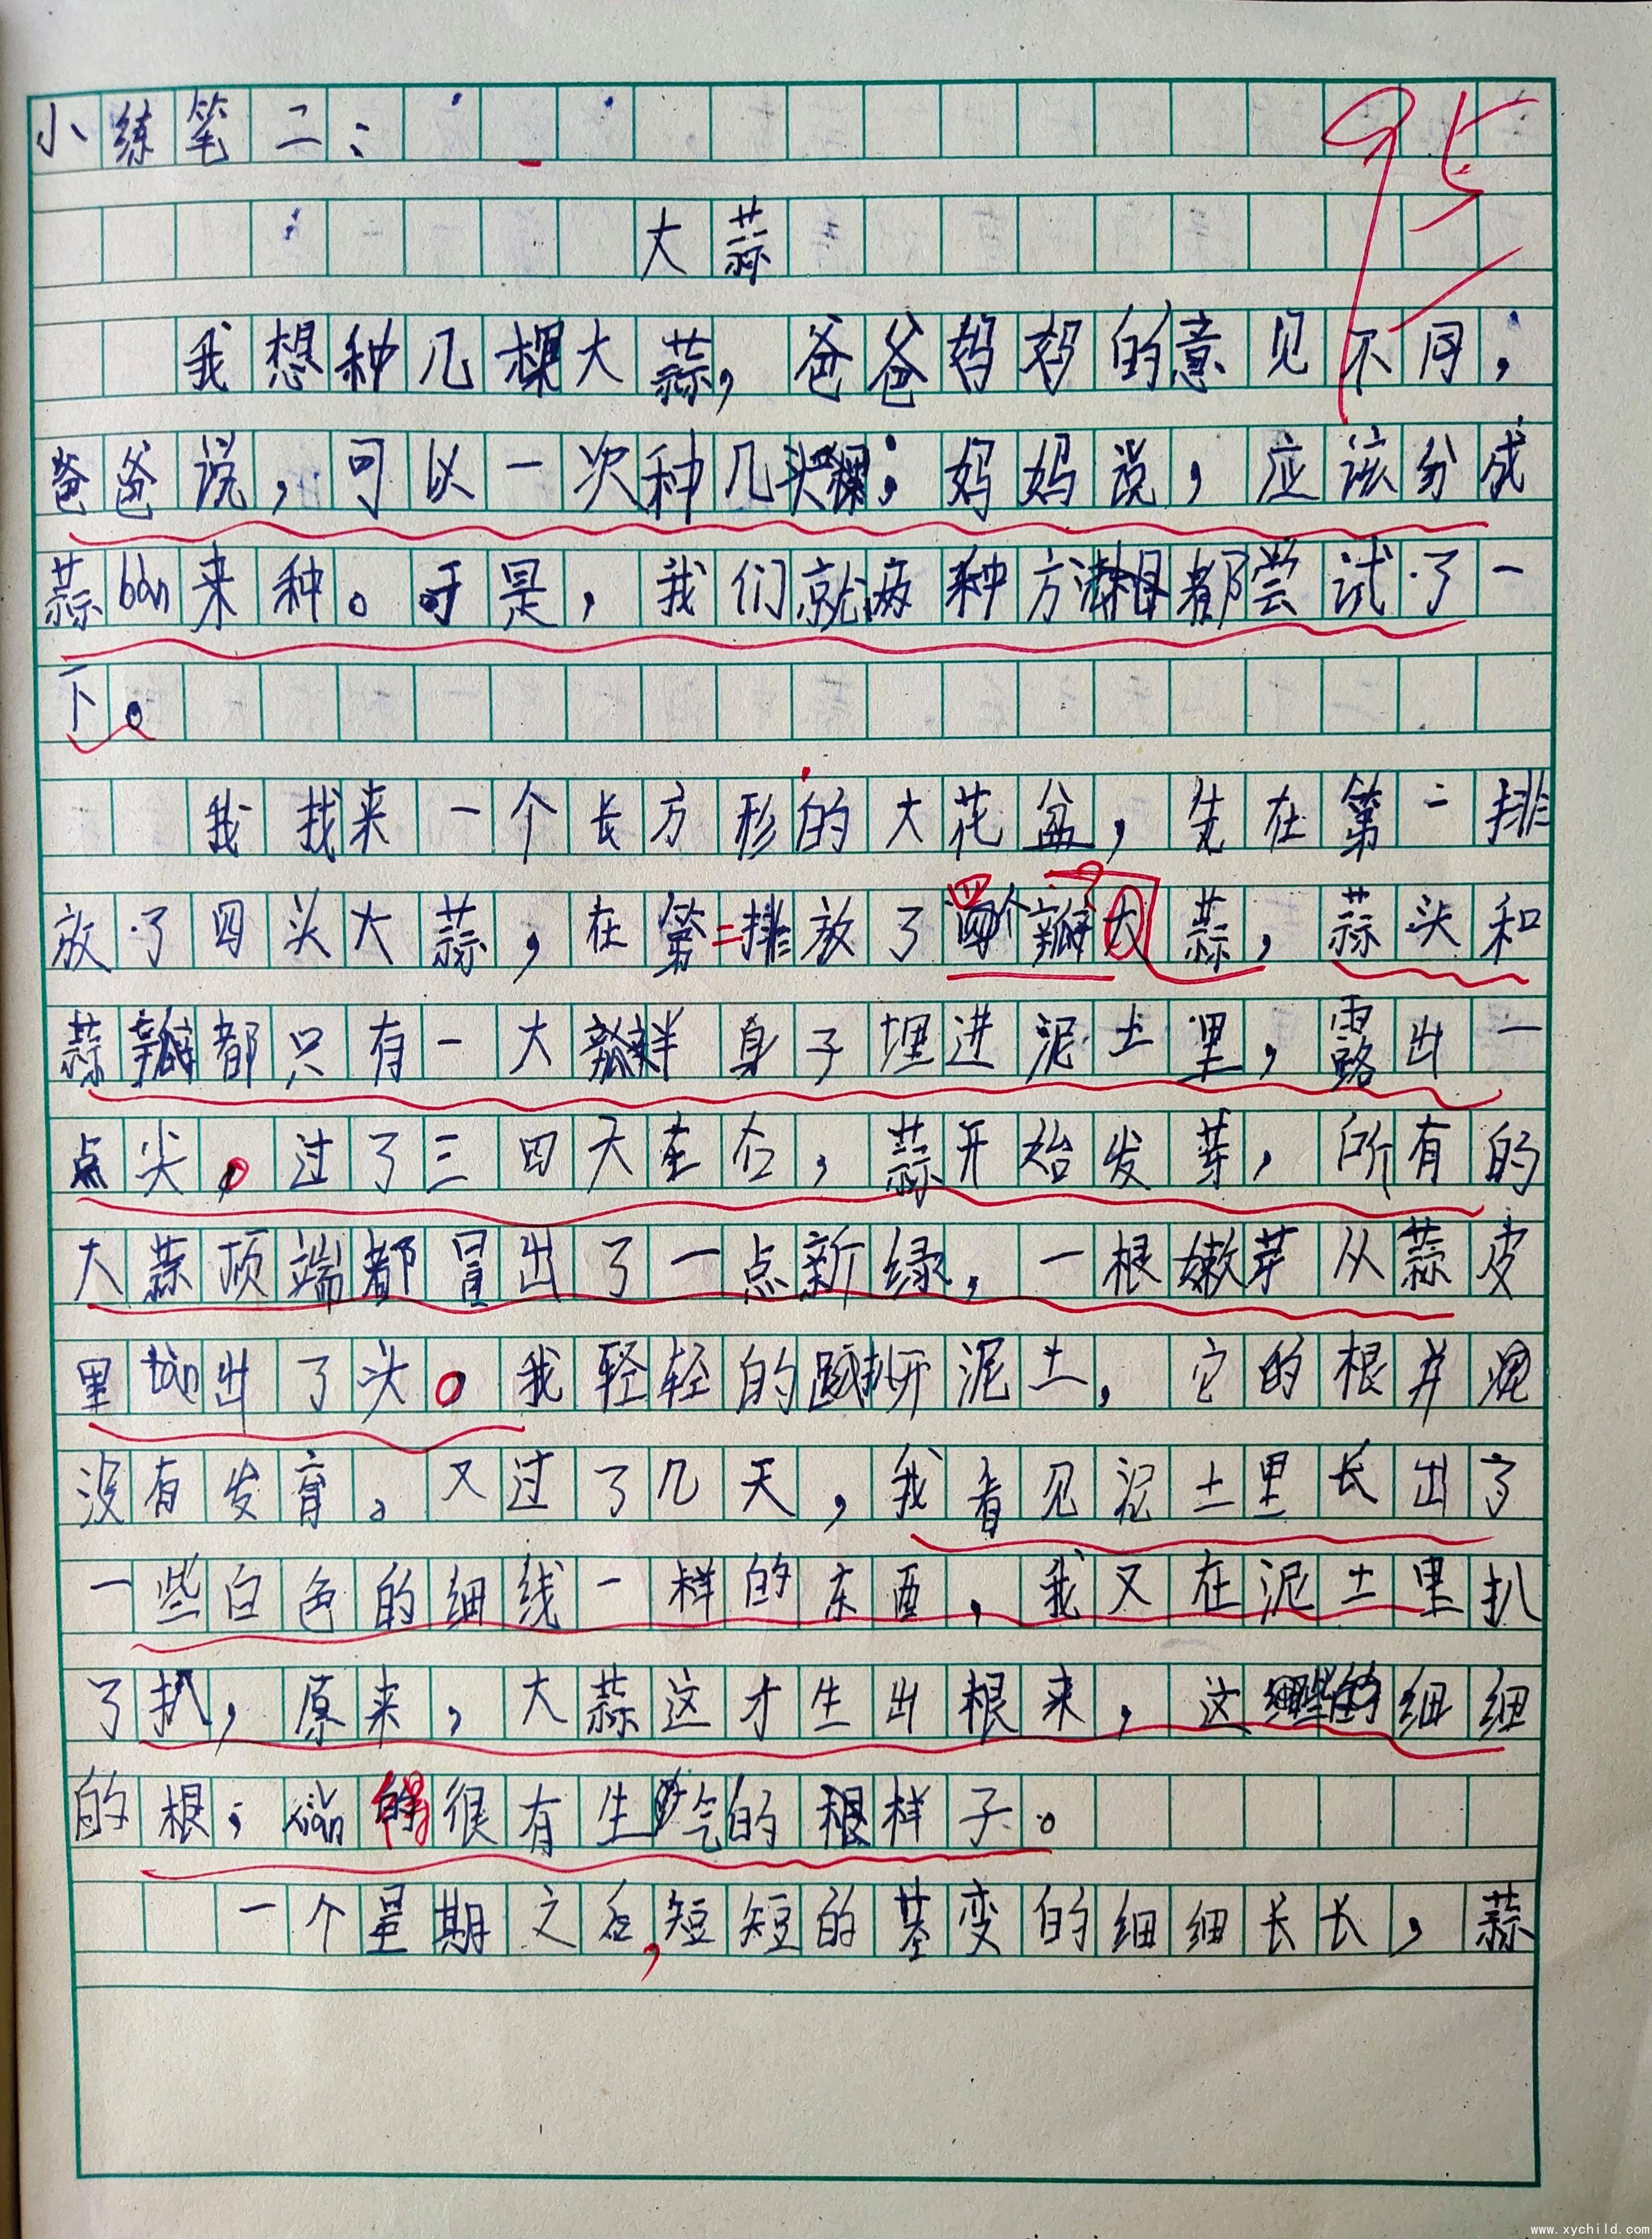 小练笔二：
95
大蒜
我想种几棵大蒜，爸爸妈妈的意见不同，
爸爸说，可以一次种几头；妈妈说，应该分成
蒜bàn来种。于是，我们就两种方都尝试了一
下。
我找来一个长方形的大花盆，先在第一排
放了四头大蒜，在第二排放了四个瓣大蒜，蒜头和
蒜瓣都只有一大半身子埋进泥土里，露出一
点尖。过了三四天左右，蒜开始发芽，所有的
大蒜顶端都冒出了一点新绿，一根嫩芽从蒜皮
里tàn出了头。我轻轻的扒开泥土，它的根并
没有发育。又过了几天，我看见泥土里长出了
一些白色的细线一样的东西，我又在泥土里扒
了扒，原来，大蒜这才生出根来，这细细
的根，xiǎn得很有生气的样子。
一个星期之后，短短的茎变的细细长长，蒜
www.xychild.com